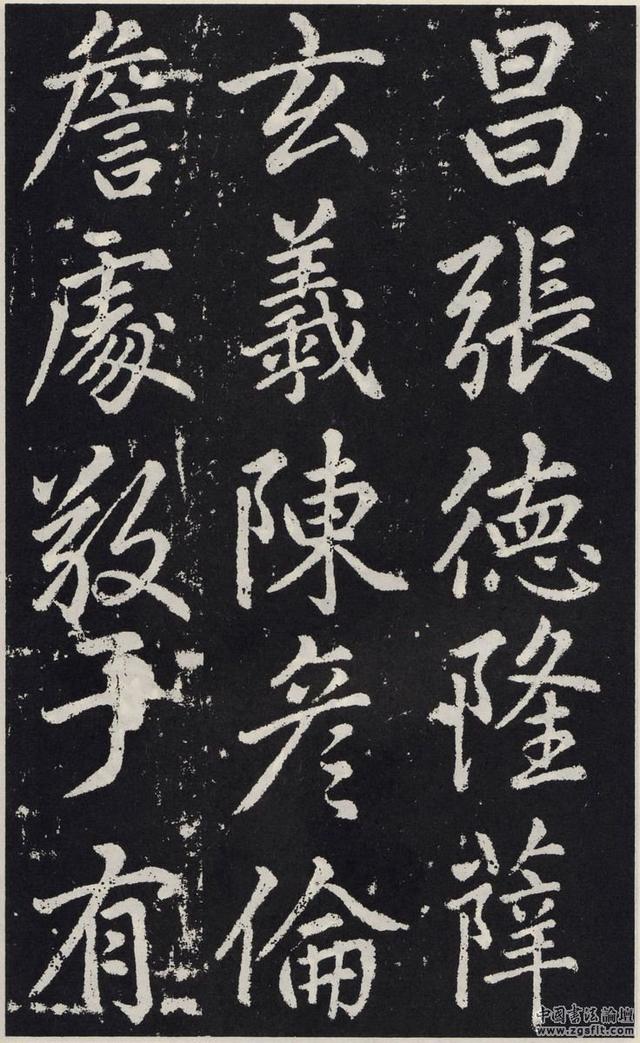 昌張德隆薛
玄義陳彦倫
詹處敬于有
中国書法論壇
www.zgsflt.com